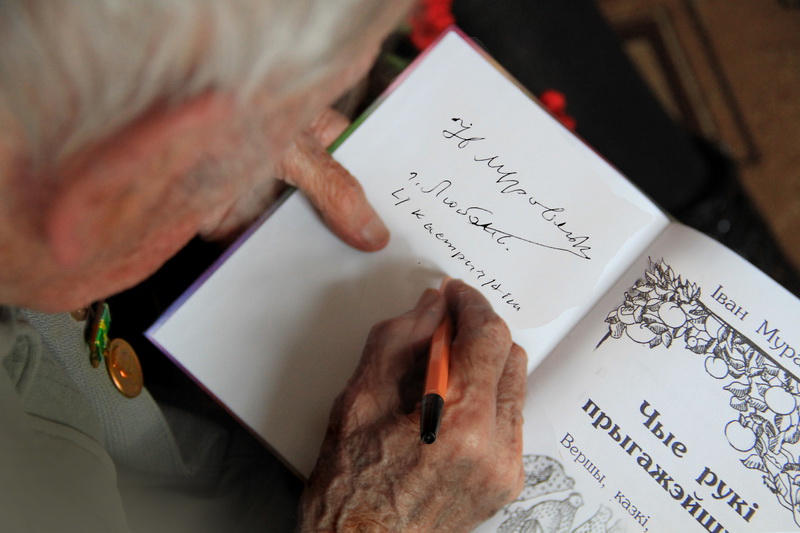 г. Любань.
4 кастрычніка
Іван Мура
Чые рукі
прыгажэйш
Вершы, казкі,